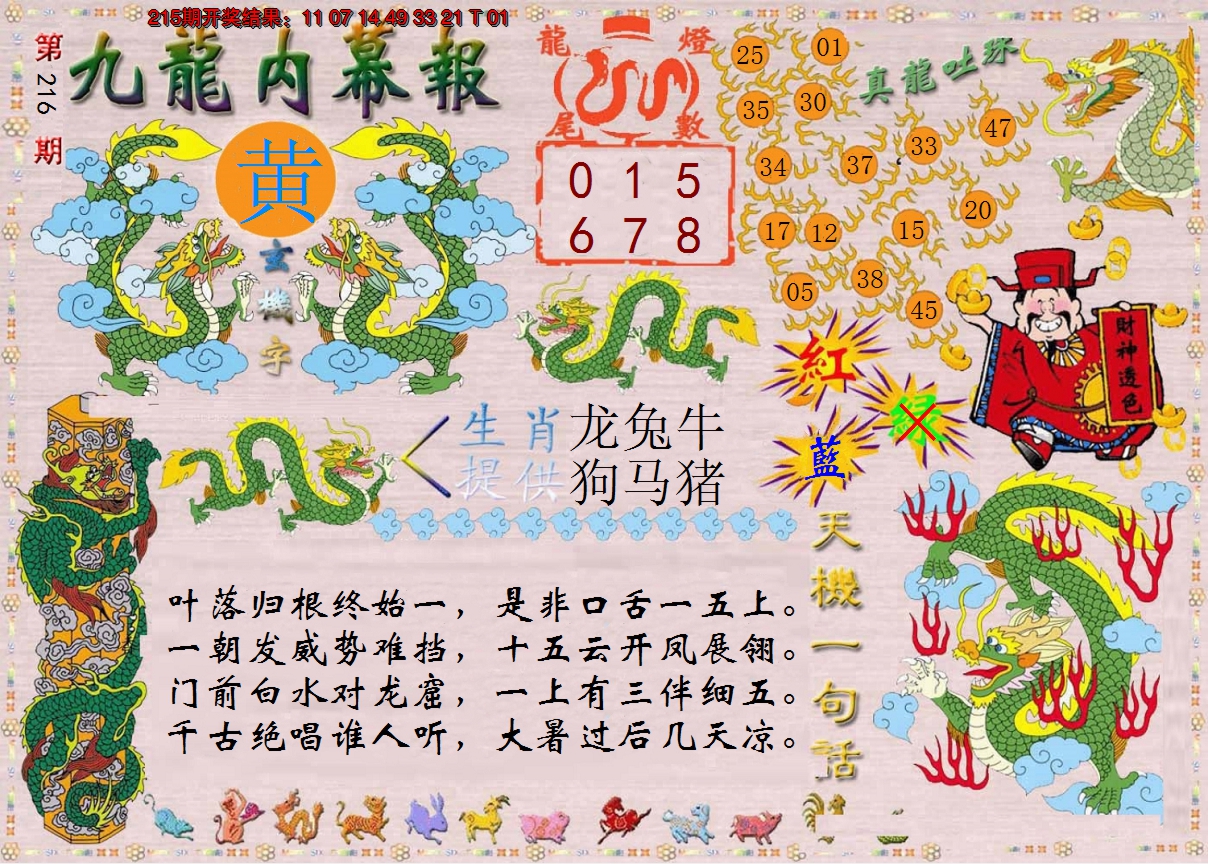 215期开奖结果：11 07 14 49 33 21 T 01
第216期
九龍内幕報
龍燈
尾數
0 1 5
6 7 8
真龍吐珠
25
01
35
30
47
33
34
37
20
17
12
15
38
05
45
黄
玄機字
財神透色
紅
绿
藍
生肖
提供
龙兔牛
狗马猪
天機一句話
叶落归根终始一，是非口舌一五上。
一朝发威势难挡，十五云开凤展翎。
门前白水对龙窟，一上有三伴细五。
千古绝唱谁人听，大暑过后几天凉。